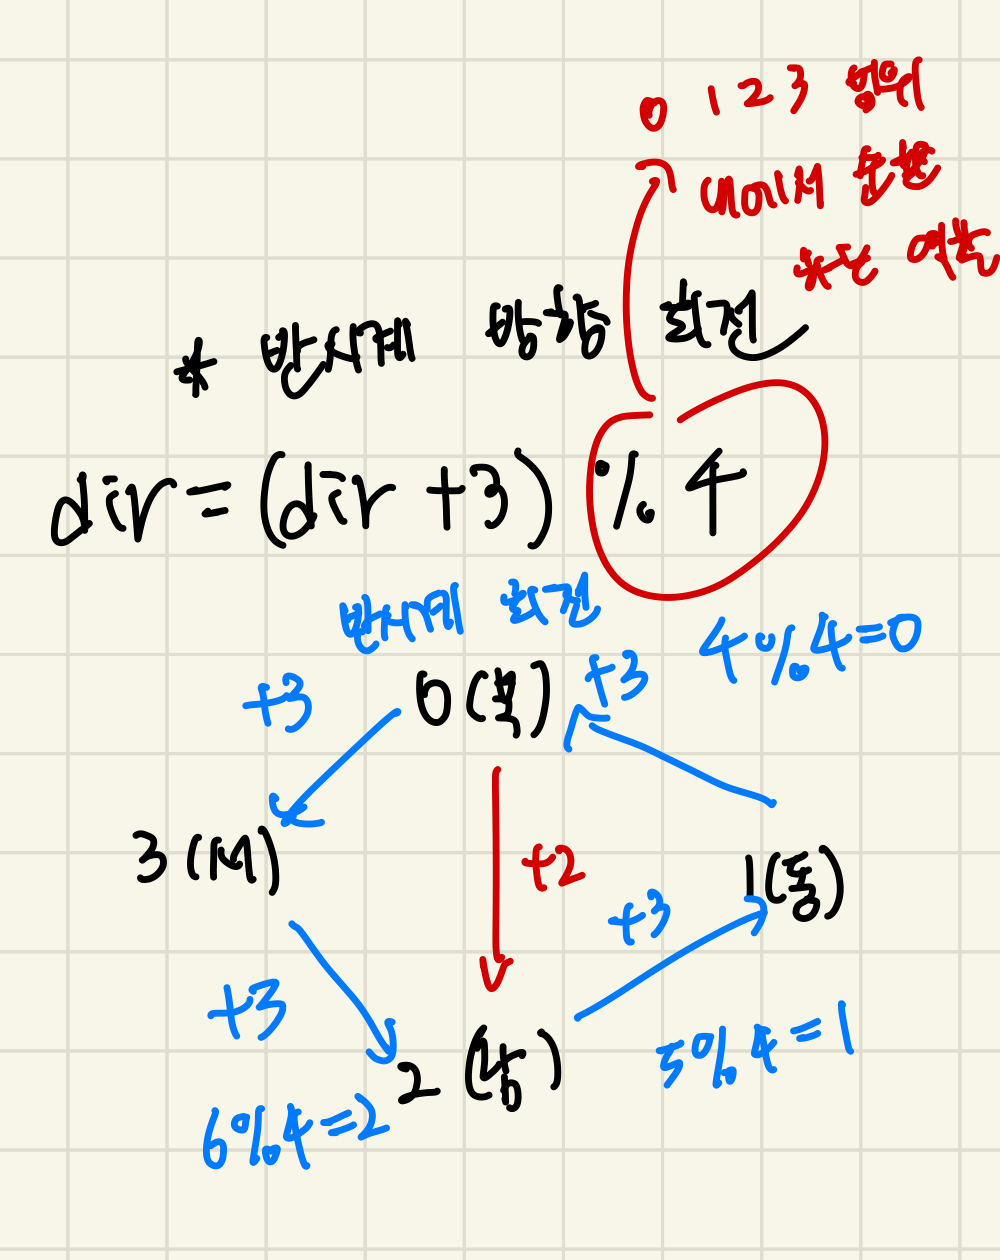 0 1 2 3 범위
내에서 순환
*는 역순
* 반시계 방향 회전
dir = (dir +3) % 4
반시계 회전
+3
0 (북)
+3
4%4=0
3 (서)
+2
1(동)
+3
+3
2 (남)
5%4=1
6%4=2